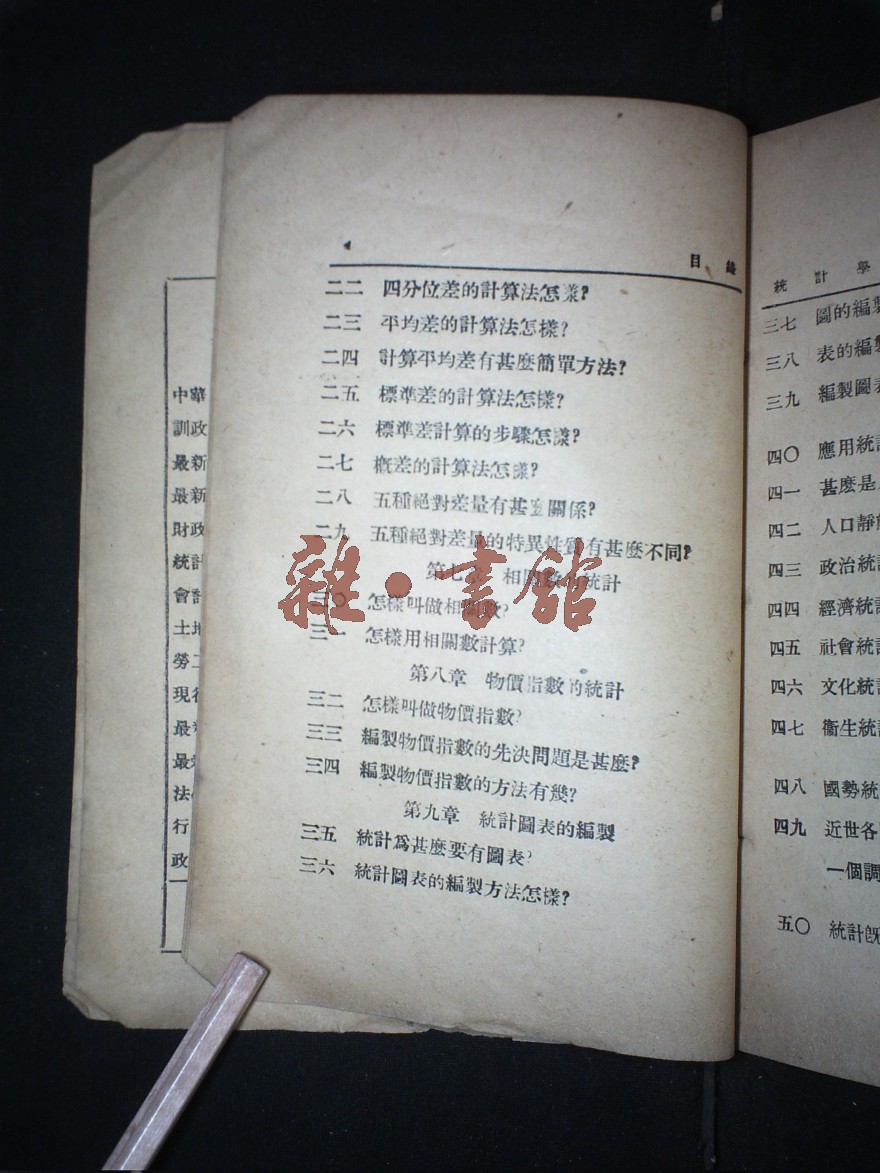 目錄
二二 四分位差的計算法怎樣?
二三 平均差的計算法怎樣?
二四 計算平均差有甚麼簡單方法?
二五 標準差的計算法怎樣?
二六 標準差計算的步驟怎樣?
二七 概差的計算法怎樣?
二八 五種絕對差量有甚麼關係?
二九 五種絕對差量的特異性質有甚麼不同?
第七章 相關數的統計
三〇 怎樣叫做相關數?
三一 怎樣用相關數計算?
第八章 物價指數的統計
三二 怎樣叫做物價指數?
三三 編製物價指數的先決問題是甚麼?
三四 編製物價指數的方法有幾?
第九章 統計圖表的編製
三五 統計爲甚麼要有圖表?
三六 統計圖表的編製方法怎樣?
雜·書館
統計學
三七 圖的編製
三八 表的編製
三九 編製圖表
四〇 應用統計
四一 甚麼是
四二 人口靜態
四三 政治統計
四四 經濟統計
四五 社會統計
四六 文化統計
四七 衞生統計
四八 國勢統
四九 近世各
一個調
五〇 統計既
中華
訓政
最新
最新
財政
統計
會計
土地
勞工
現行
最
最
法
行
政